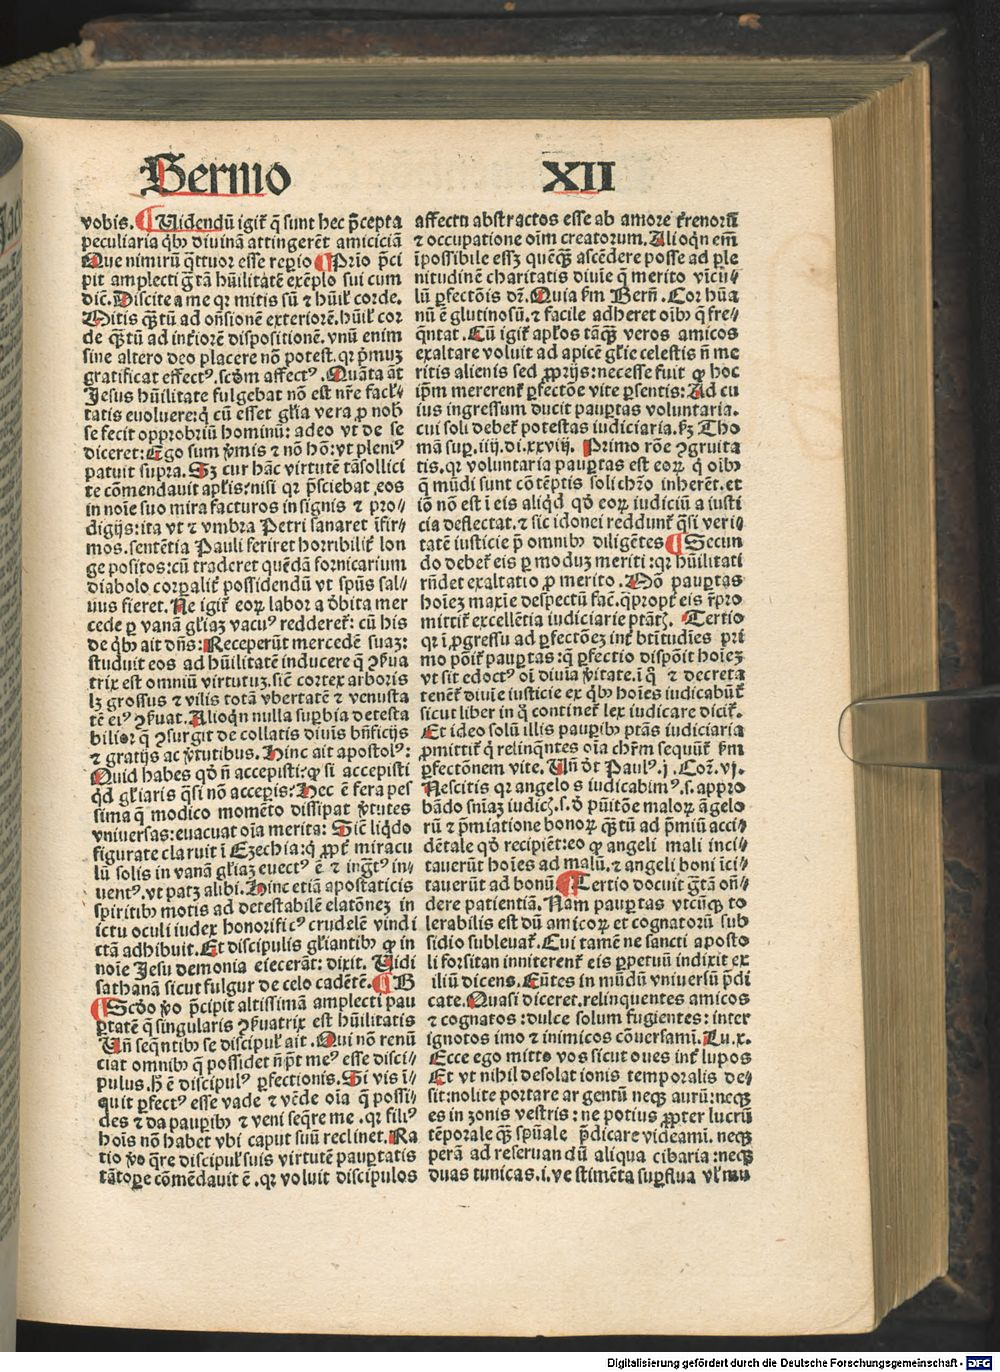 Sermo XII
vobis. ¶ Uidendū igit̉ q̄ sunt hec p̄cepta
peculiaria qͥbꝫ diuinā attingerēt amiciciā
Que nimirū qͣttuor esse reperio ¶ Prīo p̄ci
pit amplecti gͣtā hūilitatē exēplo sui cum
dic̄. Discite a me qꝛ mitis sū ⁊ hūil̓ corde.
Mitis qꝫtū ad oñsionē exteriorē. hūil̓ cor
de qꝫtū ad int̓iorē dispositionē. vnū enim
sine altero deo placere nō potest. qꝛ pͥmuꝫ
gratificat effectꝰ. scd̓m affectꝰ. Quāta āt
Jesus hūilitate fulgebat nō est nr̄e facl̓⸗
tatis euoluere: qͥ cū esset gl̓ia vera ꝓ nob̓
se fecit opprobriū hominū: adeo vt de se
diceret: Ego sum v̓mis ⁊ nō hō: vt pleniꝰ
patuit supra. Sꝫ cur hāc virtutē tā sollici
te cōmendauit apl̓is: nisi qꝛ p̄sciebat eos
in noīe suo mira facturos in signis ⁊ pro⸗
digijs: ita vt ⁊ vmbra Petri sanaret īfir⸗
mos. sentētia Pauli feriret horribilit̓ lon
ge positos: cū traderet quēdā fornicarium
diabolo corꝑalit̓ possidendū vt sp̄us sal⸗
uus fieret. Ne igit̉ eoꝝ labor a d̓bita mer
cede ꝑ vanā gl̓iaꝫ vacuꝰ redderet̉: cū his
de qͥbꝫ ait dn̄s: Receperūt mercedē suaꝫ:
studuit eos ad hūilitatē inducere q̄ ꝯẜua
trix est omniū virtutuꝫ. sic̄ cortex arboris
lꝫ grossus ⁊ vilis totā vbertatē ⁊ venusta
tē eiꝰ ꝯẜuat. Alioqͥn nulla suꝑbia detesta
bilior q̄ ꝯsurgit de collatis diuīs bn̄ficijs
⁊ gratijs ac v̓tutibus. Hinc ait apostolꝰ:
Quid habes qd̓ n̄ accepisti: ꝙ si accepisti
qͥd gl̓iaris qͣsi nō acceꝑis: Hec ē fera pes
sima q̄ modico momēto dissipat v̓tutes
vniuersas: euacuat oīa merita: Sic̄ liqͥdo
figurate claruit ī Ezechia: qͥ ꝓpt̓ miracu
lū solis in vanā gl̓iaꝫ euectꝰ ē ⁊ ingͣtꝰ in⸗
uentꝰ. vt patꝫ alibi. Hinc etiā apostaticis
spiritibꝫ motis ad detestabilē elatōneꝫ in
ictu oculi iudex honorificꝰ crudelē vindi
ctā adhibuit. Et discipulis gl̓iantibꝫ ꝙ in
noīe Jesu demonia eiecerāt: dixit. Uidi
sathanā sicut fulgur de celo cadētē. ¶ B
¶ Scd̓o v̓o p̄cipit altissimā amplecti pau
ꝑtatē q̄ singularis ꝯẜuatrix est hūilitatis
Un̄ seqn̄tibꝫ se discipul̓ ait. Qui nō renū
ciat omnibꝫ q̄ possidet nō pt̄ meꝰ esse disci⸗
pulus. h̄ ē discipulꝰ ꝑfectionis. Si vis ī⸗
quit ꝑfectꝰ esse vade ⁊ vēde oīa q̄ possi⸗
des ⁊ da pauꝑibꝫ ⁊ veni seqͣre me. qꝛ filiꝰ
hoīs nō habet vbi caput suū reclinet. Ra
tio v̓o qͣre discipul̓ suis virtutē pauꝑtatis
tātoꝑe cōmēdauit ē. qꝛ voluit discipulos
affectu abstractos esse ab amore t̓renorū
⁊ occupatione oīm creatorum. Alioqͥn em̄
īpossibile essꝫ quēqꝫ ascēdere posse ad ple
nitudinē charitatis diuīe q̄ merito vīcu⸗
lū ꝑfectōis dr̄. Quia ẜm Bern̄. Cor hūa
nū ē glutinosū. ⁊ facile adheret oībꝫ q̄ fre⸗
qͣntat. Cū igit̉ apl̓os tāqꝫ veros amicos
exaltare voluit ad apicē gl̓ie celestis n̄ me
ritis alienis sed ꝓprijs: necesse fuit ꝙ hoc
ip̄m mererent̉ ꝑfectōe vite p̄sentis: Ad cu
ius ingressum ducit pauꝑtas voluntaria.
cui soli debet̉ potestas iudiciaria. ẜꝫ Tho
mā suꝑ. iiij. di. xxviij. Primo rōe ꝯgruita
tis. qꝛ voluntaria pauꝑtas est eoꝝ qͥ oībꝫ
q̄ mūdi sunt cōtēptis soli chr̄o inherēt. et
iō nō est ī eis aliqͥd qd̓ eoꝝ iudiciū a iusti
cia deflectat. ⁊ sic idonei reddunt̉ qͣsi veri⸗
tatē iusticie p̄ omnibꝫ diligētes ¶ Secun
do debet̉ eis ꝑ moduꝫ meriti: qꝛ hūilitati
rn̄det exaltatio ꝓ merito. Nō pauꝑtas
hoīeꝫ maxīe despectū fac̄. qͣpropt̓ eis r̄pro
mittit̉ excellētia iudiciarie ptāt̓. Tertio
qꝛ ī ꝓgressu ad ꝑfectōeꝫ int̓ bt̄itudīes pri
mo pōit̉ pauꝑtas: q̄ ꝑfectio dispōit hoīeꝫ
vt sit edoctꝰ oī diuīa v̓itate. ī qͣ ⁊ decreta
tenet̉ diuīe iusticie ex qͥbꝫ hoīes iudicabūt̉
sicut liber in qͦ continet̉ lex iudicare dicit̉.
Et ideo solū illis pauꝑibꝫ ptās iudiciaria
ꝓmittit̉ qͥ relinqͣntes oīa chr̄m sequūt̉ ẜm
ꝑfectōnem vite. Un̄ d̓t Paulꝰ. j. Cor. vj.
Nescitis qꝛ angelos iudicabimꝰ. s. appro
bādo sn̄iaꝫ iudicꝫ. s. d̓ pūitōe maloꝝ āgelo
rū ⁊ p̄miatione bonoꝝ qꝫtū ad p̄miū acci
dētale qd̓ recipiēt: eo ꝙ angeli mali inci⸗
tauerūt hoīes ad malū. ⁊ angeli boni īci⸗
tauerūt ad bonū ¶ Tertio docuit gͣtā on̄⸗
dere patientiā. Nam pauꝑtas vtcūqꝫ to
lerabilis est dū amicoꝝ et cognatorū sub
sidio subleuat̉. Cui tamē ne sancti aposto
li forsitan inniterent̉ eis ꝑpetuū indixit ex
iliū dicens. Eūtes in mūdū vniuersū p̄di
cate. Quasi diceret. relinquentes amicos
⁊ cognatos: dulce solum fugientes: inter
ignotos imo ⁊ inimicos cōuersamī. Lu. x.
Ecce ego mitto vos sicut oues int̓ lupos
Et vt nihil desolationis temporalis de⸗
sit: nolite portare argentū neqꝫ aurū: neqꝫ
es in zonis vestris: ne potius ꝓpter lucrū
tēporale qꝫ sp̄uale p̄dicare videamī. neqꝫ
perā ad reseruandū aliqua cibaria: neqꝫ
duas tunicas. i. vestimēta suꝑflua vl̓ mu
Digitalisierung gefördert durch die Deutsche Forschungsgemeinschaft - DFG